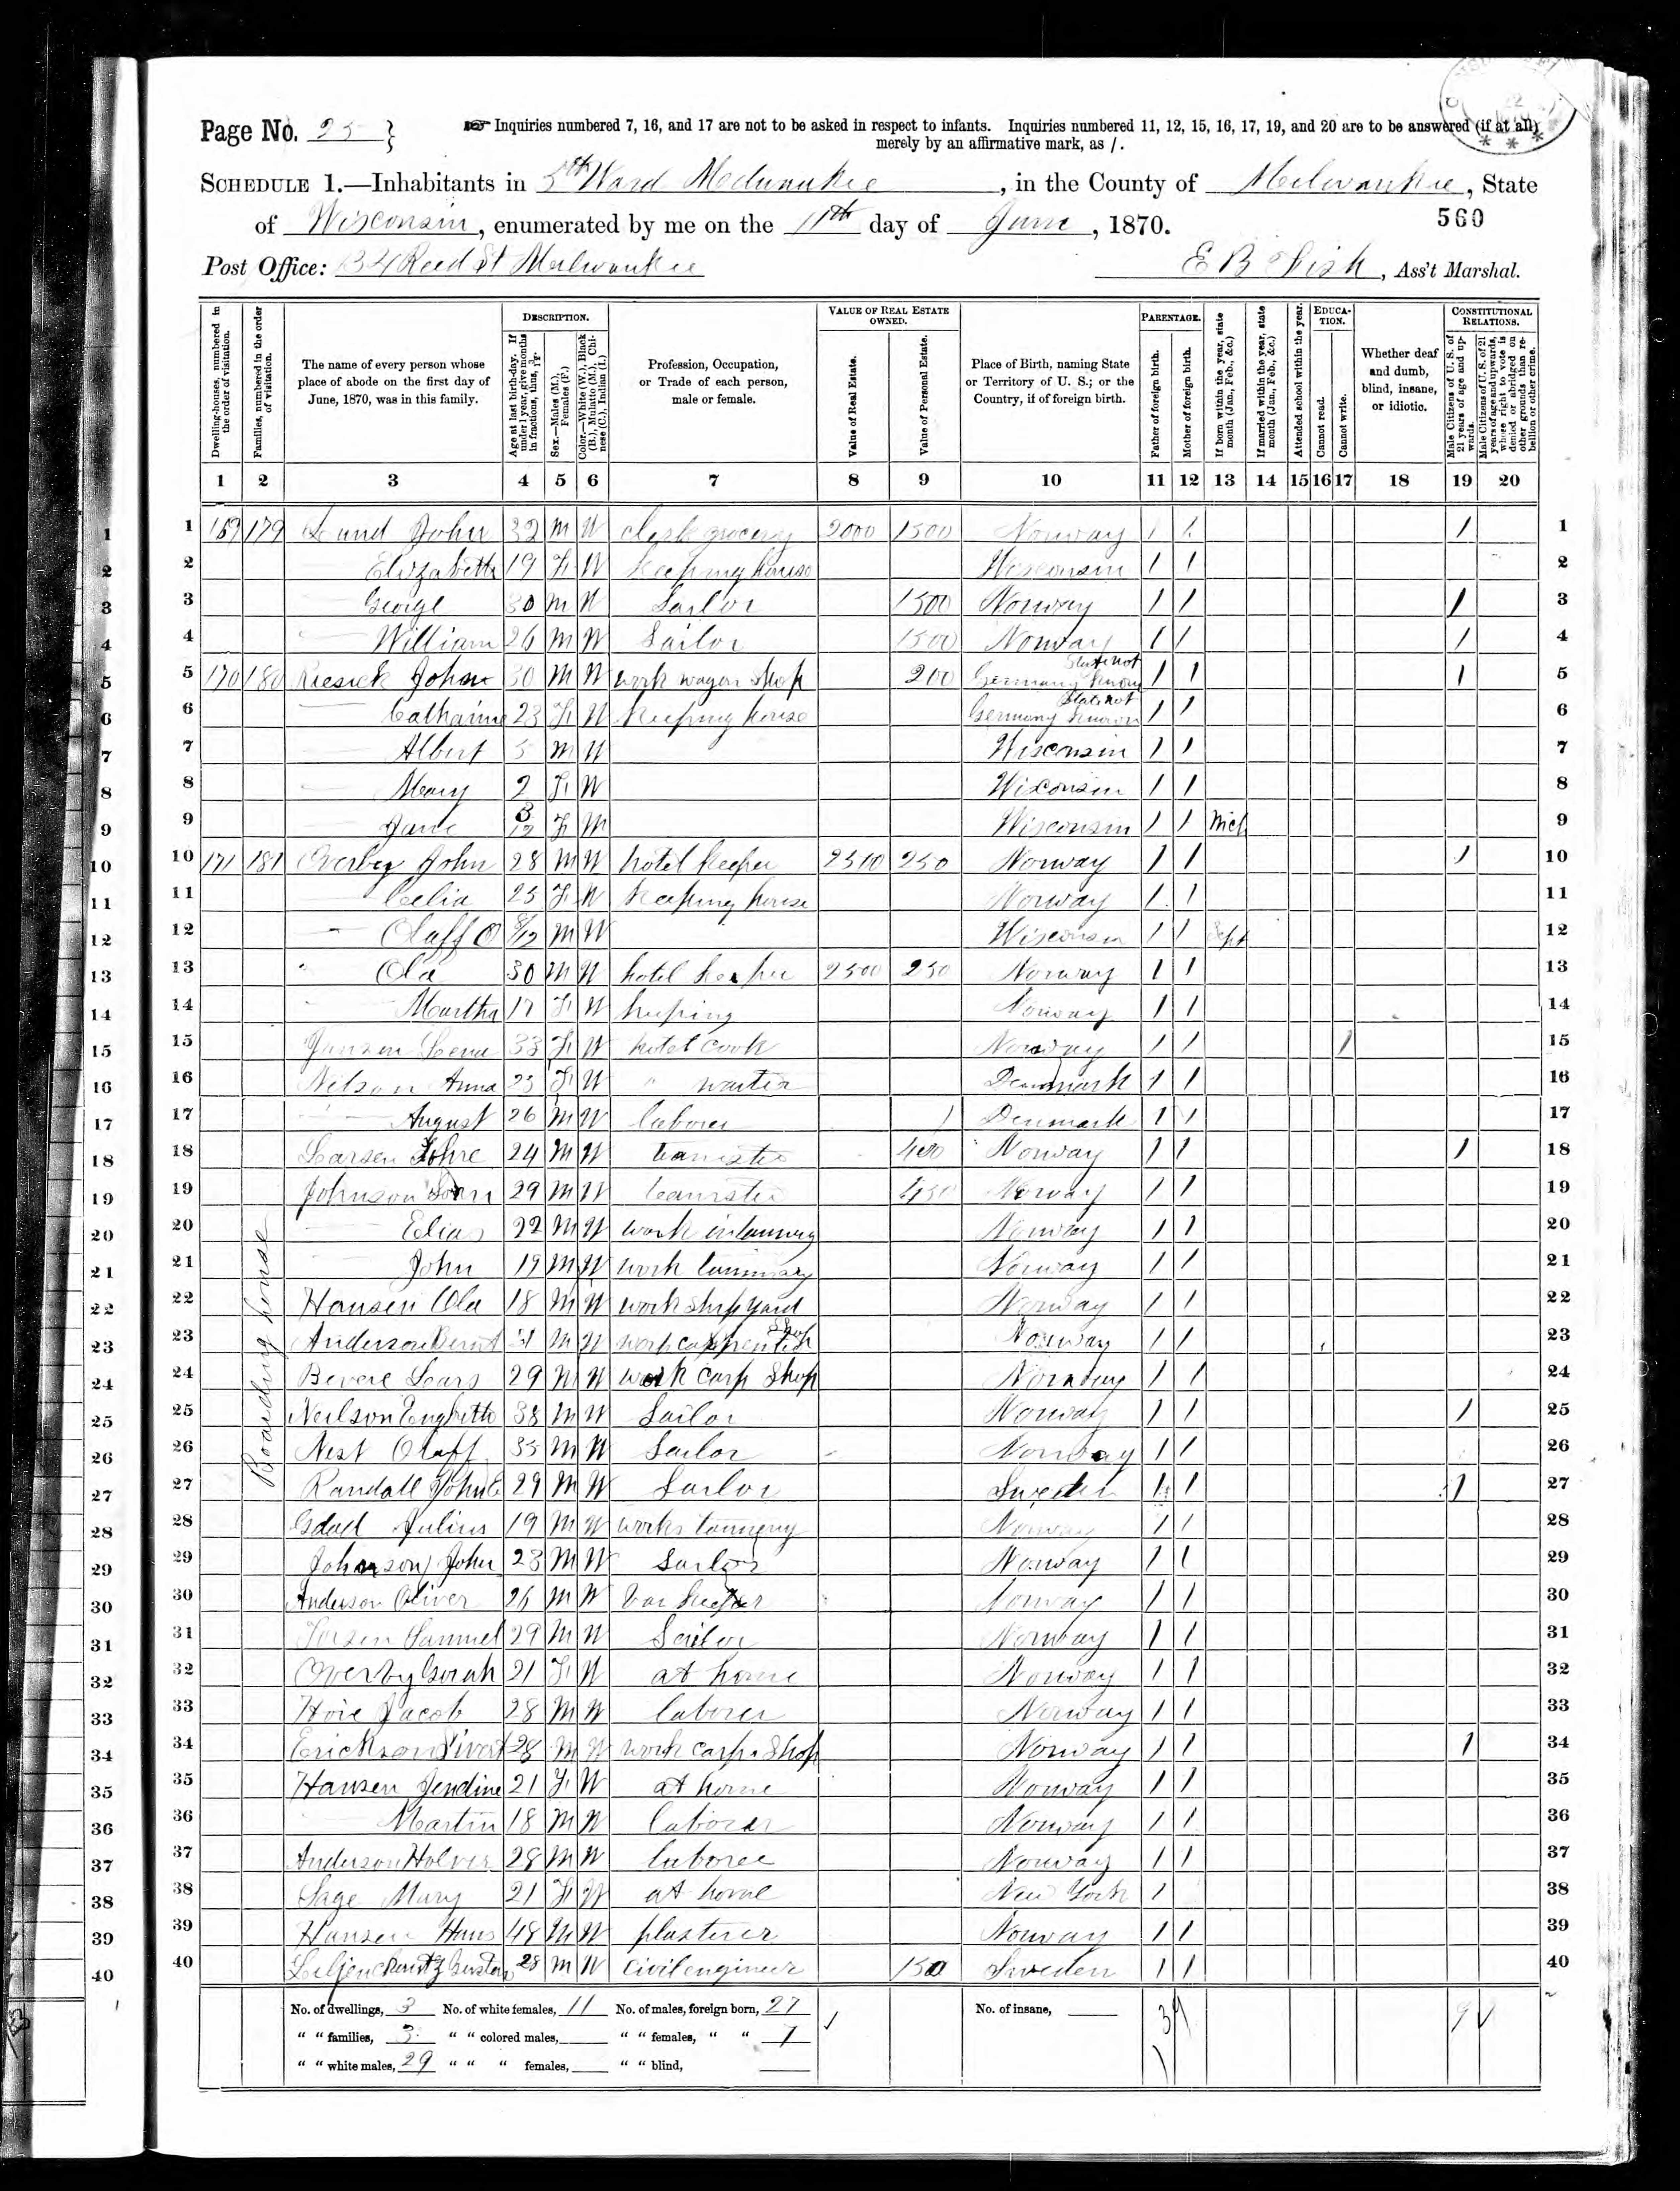 Page No. 25
☞ Inquiries numbered 7, 16, and 17 are not to be asked in respect to infants. Inquiries numbered 11, 12, 15, 16, 17, 19, and 20 are to be answered (if at all)
merely by an affirmative mark, as /.
SCHEDULE 1.—Inhabitants in 5th Ward Milwaukie, in the County of Milwaukie, State
of Wisconsin, enumerated by me on the 11th day of June, 1870.
560
Post Office: 134 Reed St Milwaukie
E B Fish, Ass't Marshal.
Dwelling-houses, numbered in the order of visitation.
Families, numbered in the order of visitation.
The name of every person whose place of abode on the first day of June, 1870, was in this family.
DESCRIPTION.
Age at last birth-day. If under 1 year, give months in fractions, thus, 3/12.
Sex.—Males (M.), Females (F.)
Color.—White (W.), Black (B.), Mulatto (M.), Chinese (C.), Indian (I.)
Profession, Occupation, or Trade of each person, male or female.
VALUE OF REAL ESTATE OWNED.
Value of Real Estate.
Value of Personal Estate.
Place of Birth, naming State or Territory of U. S.; or the Country, if of foreign birth.
PARENTAGE.
Father of foreign birth.
Mother of foreign birth.
If born within the year, state month (Jan., Feb., &c.)
If married within the year, state month (Jan., Feb., &c.)
Attended school within the year.
EDUCATION.
Cannot read.
Cannot write.
Whether deaf and dumb, blind, insane, or idiotic.
CONSTITUTIONAL RELATIONS.
Male Citizens of U. S. of 21 years of age and upwards.
Male Citizens of U. S. of 21 years of age and upwards, whose right to vote is denied or abridged on other grounds than rebellion or other crime.
1 2 3 4 5 6 7 8 9 10 11 12 13 14 15 16 17 18 19 20
1 169 179 Lund John 32 M W clerk grocery 2000 1500 Norway / / / 1
2 Elizabeth 19 F W Keeping house Wisconsin / / 2
3 George 30 M W Sailor 1500 Norway / / / 3
4 William 26 M W Sailor 1500 Norway / / / 4
5 170 180 John 30 M W work wagon shop 200 Germany State not known / / / 5
6 Catharine 23 F W Keeping house Germany State not known / / 6
7 Albert 5 M W Wisconsin / / 7
8 Mary 2 F W Wisconsin / / 8
9 Jane 3/12 F M Wisconsin / / Mch 9
10 171 181 Overby John 28 M W hotel keeper 2500 250 Norway / / / 10
11 Celia 25 F W Keeping house Norway / / 11
12 Olaff O 8/12 M W Wisconsin / / Sept 12
13 Ola 30 M W hotel keeper 2500 250 Norway / / 13
14 Martha 17 F W keeping Norway / / 14
15 Jansen Lena 33 F W hotel cook Norway / / / 15
16 Nelson Anna 23 F W " waiter Denmark / / 16
17 August 26 M W laborer Denmark / / 17
18 Larsen 24 M W teamster 400 Norway / / / 18
19 Johnson 29 M W teamster Norway / / 19
20 Elias 22 M W work in tannery Norway / / 20
21 John 19 M W work tannery Norway / / 21
22 Hansen Ola 18 M W work ship yard Norway / / 22
23 Anderson Bernt 31 M W work carpenter shop Norway / / 23
24 Bevere Lars 29 M W work carp shop Norway / / 24
25 Neilson 38 M W Sailor Norway / / / 25
26 Nest Olaff 35 M W Sailor Norway / / 26
27 Randall John E 29 M W Sailor Sweden / / / 27
28 Julius 19 M W works tannery Norway / / 28
29 Johnson John 23 M W Sailor Norway / / 29
30 Anderson Oliver 26 M W bar keeper Norway / / 30
31 Samuel 29 M W Sailor Norway / / 31
32 Overby 21 F W at home Norway / / 32
33 Hoie Jacob 28 M W laborer Norway / / 33
34 Erickson Sivert 28 M W work carp. shop Norway / / / 34
35 Hansen Jendine 21 F W at home Norway / / 35
36 Martin 18 M W laborer Norway / / 36
37 Anderson Holver 28 M W laborer Norway / / 37
38 Sage Mary 21 F W at home New York / 38
39 Hansen Hans 48 M W plasterer Norway / / 39
40 28 M W civil engineer 150 Sweden / / 40
Boarding house
No. of dwellings, 3 No. of white females, 11 No. of males, foreign born, 27 No. of insane,
" " families, 3 " " colored males, " " females, " " 7
" " white males, 29 " " " females, " " blind,